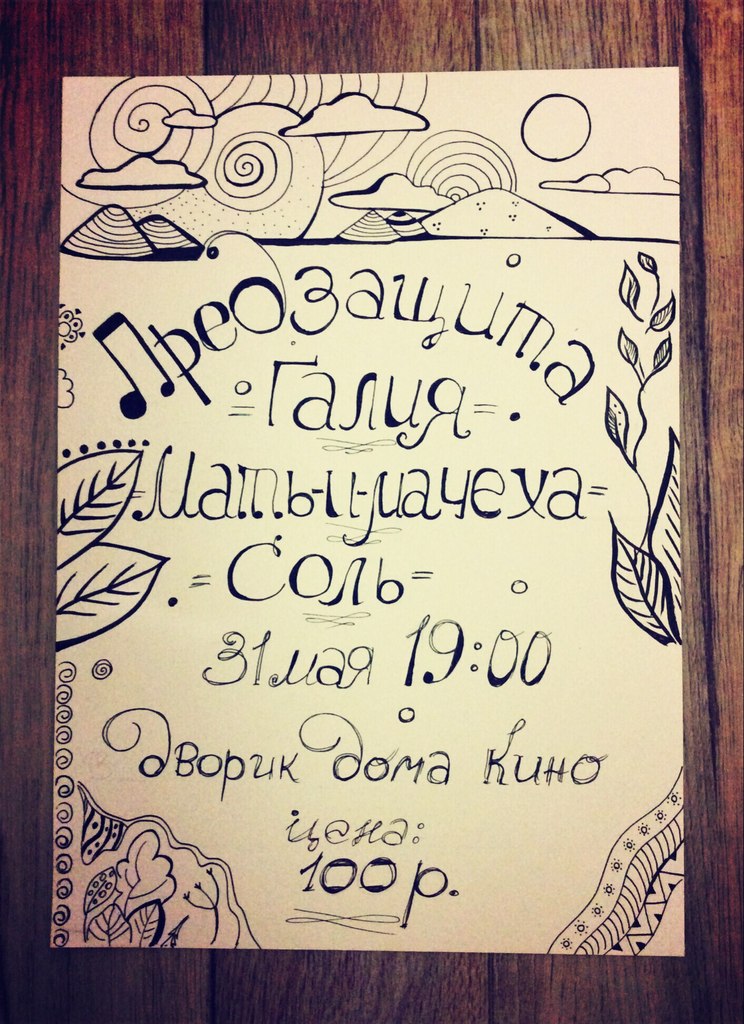 Предзащита
=Галия=.
=Мать-и-мачеха=
.=Соль=
31 мая 19:00
дворик дома кино
цена:
100р.